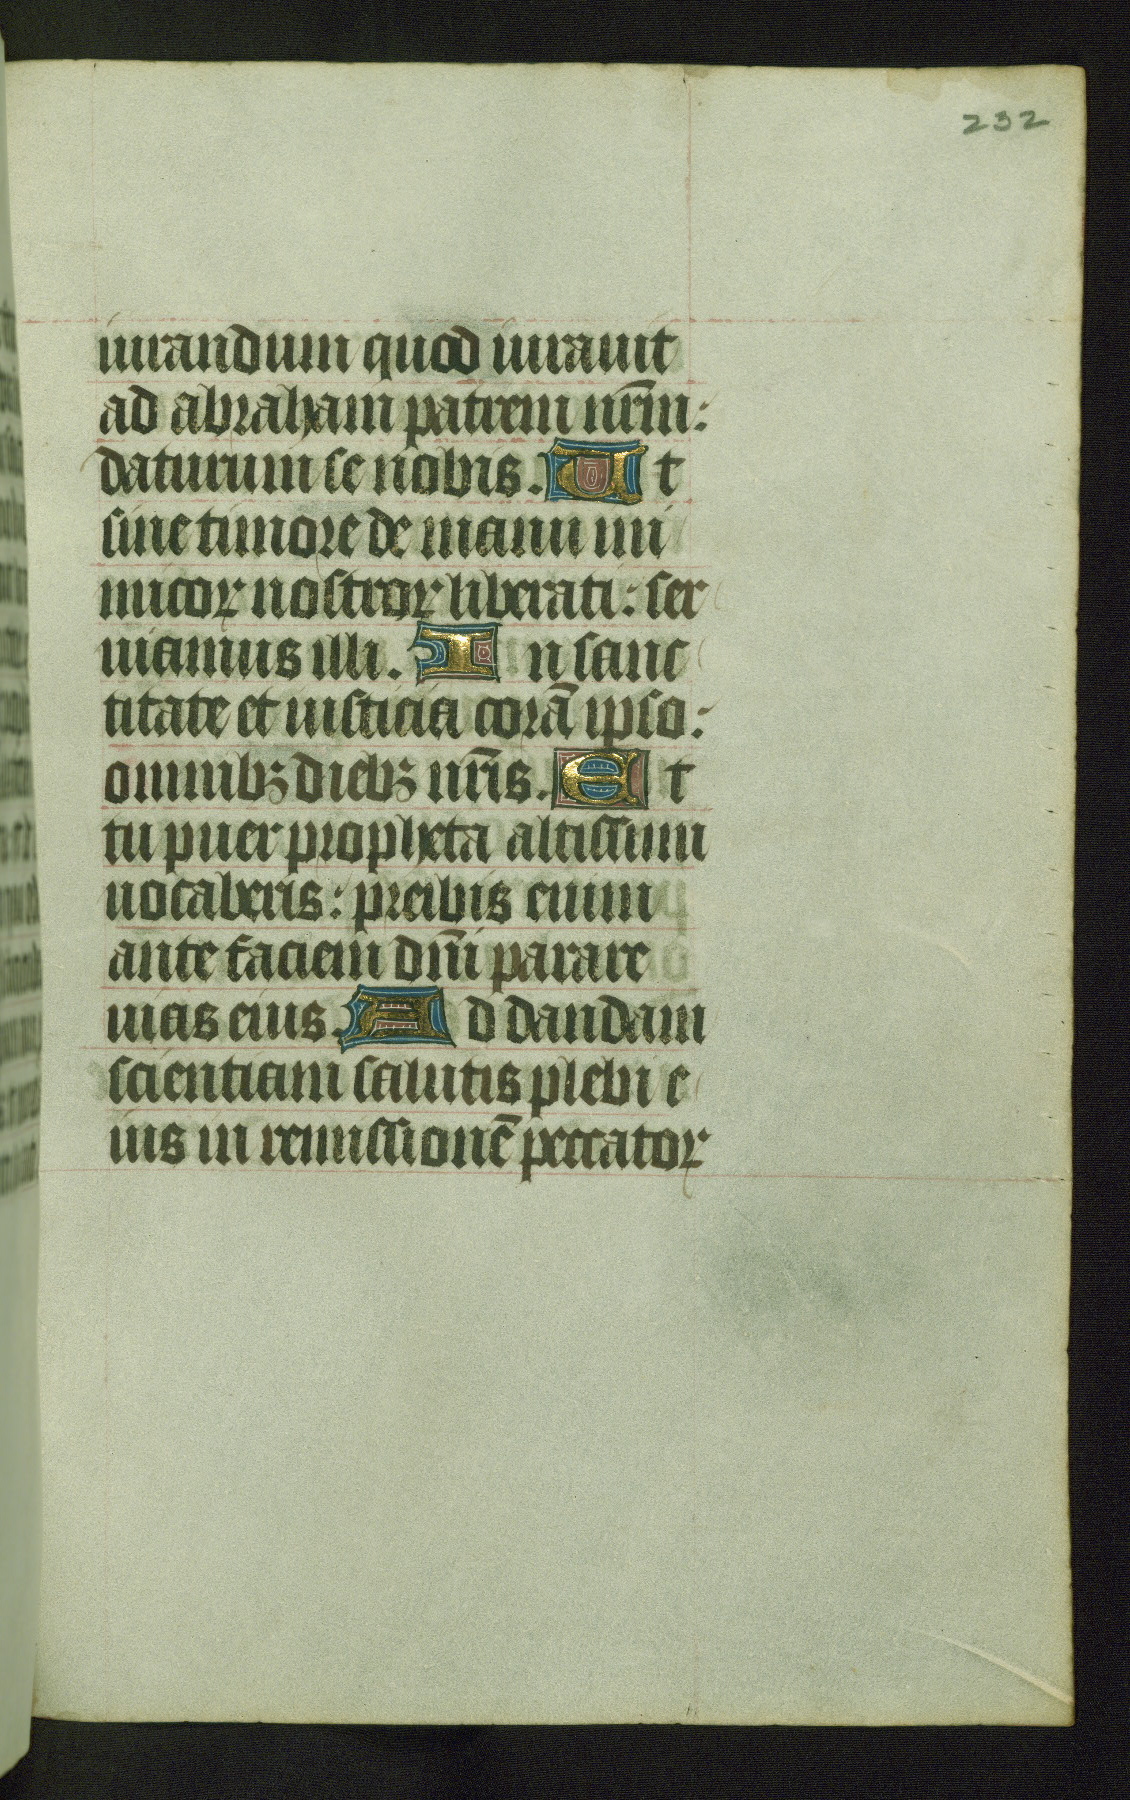 232
iurandum quod iurauit
ad abraham patrem nr̄m:
daturum se nobis. Ut
sine timore de manu ini
micoꝝ nostroꝝ liberati: ser
uiamus illi. In sanc
titate et iusticia corā ipso:
omnibꝫ diebꝫ nr̄is. Et
tu puer propheta altissimi
uocaberis: preibis enim
ante faciem dn̄i parare
uias eius. Ad dandam
scientiam salutis plebi e
ius in remissionē peccatoꝝ